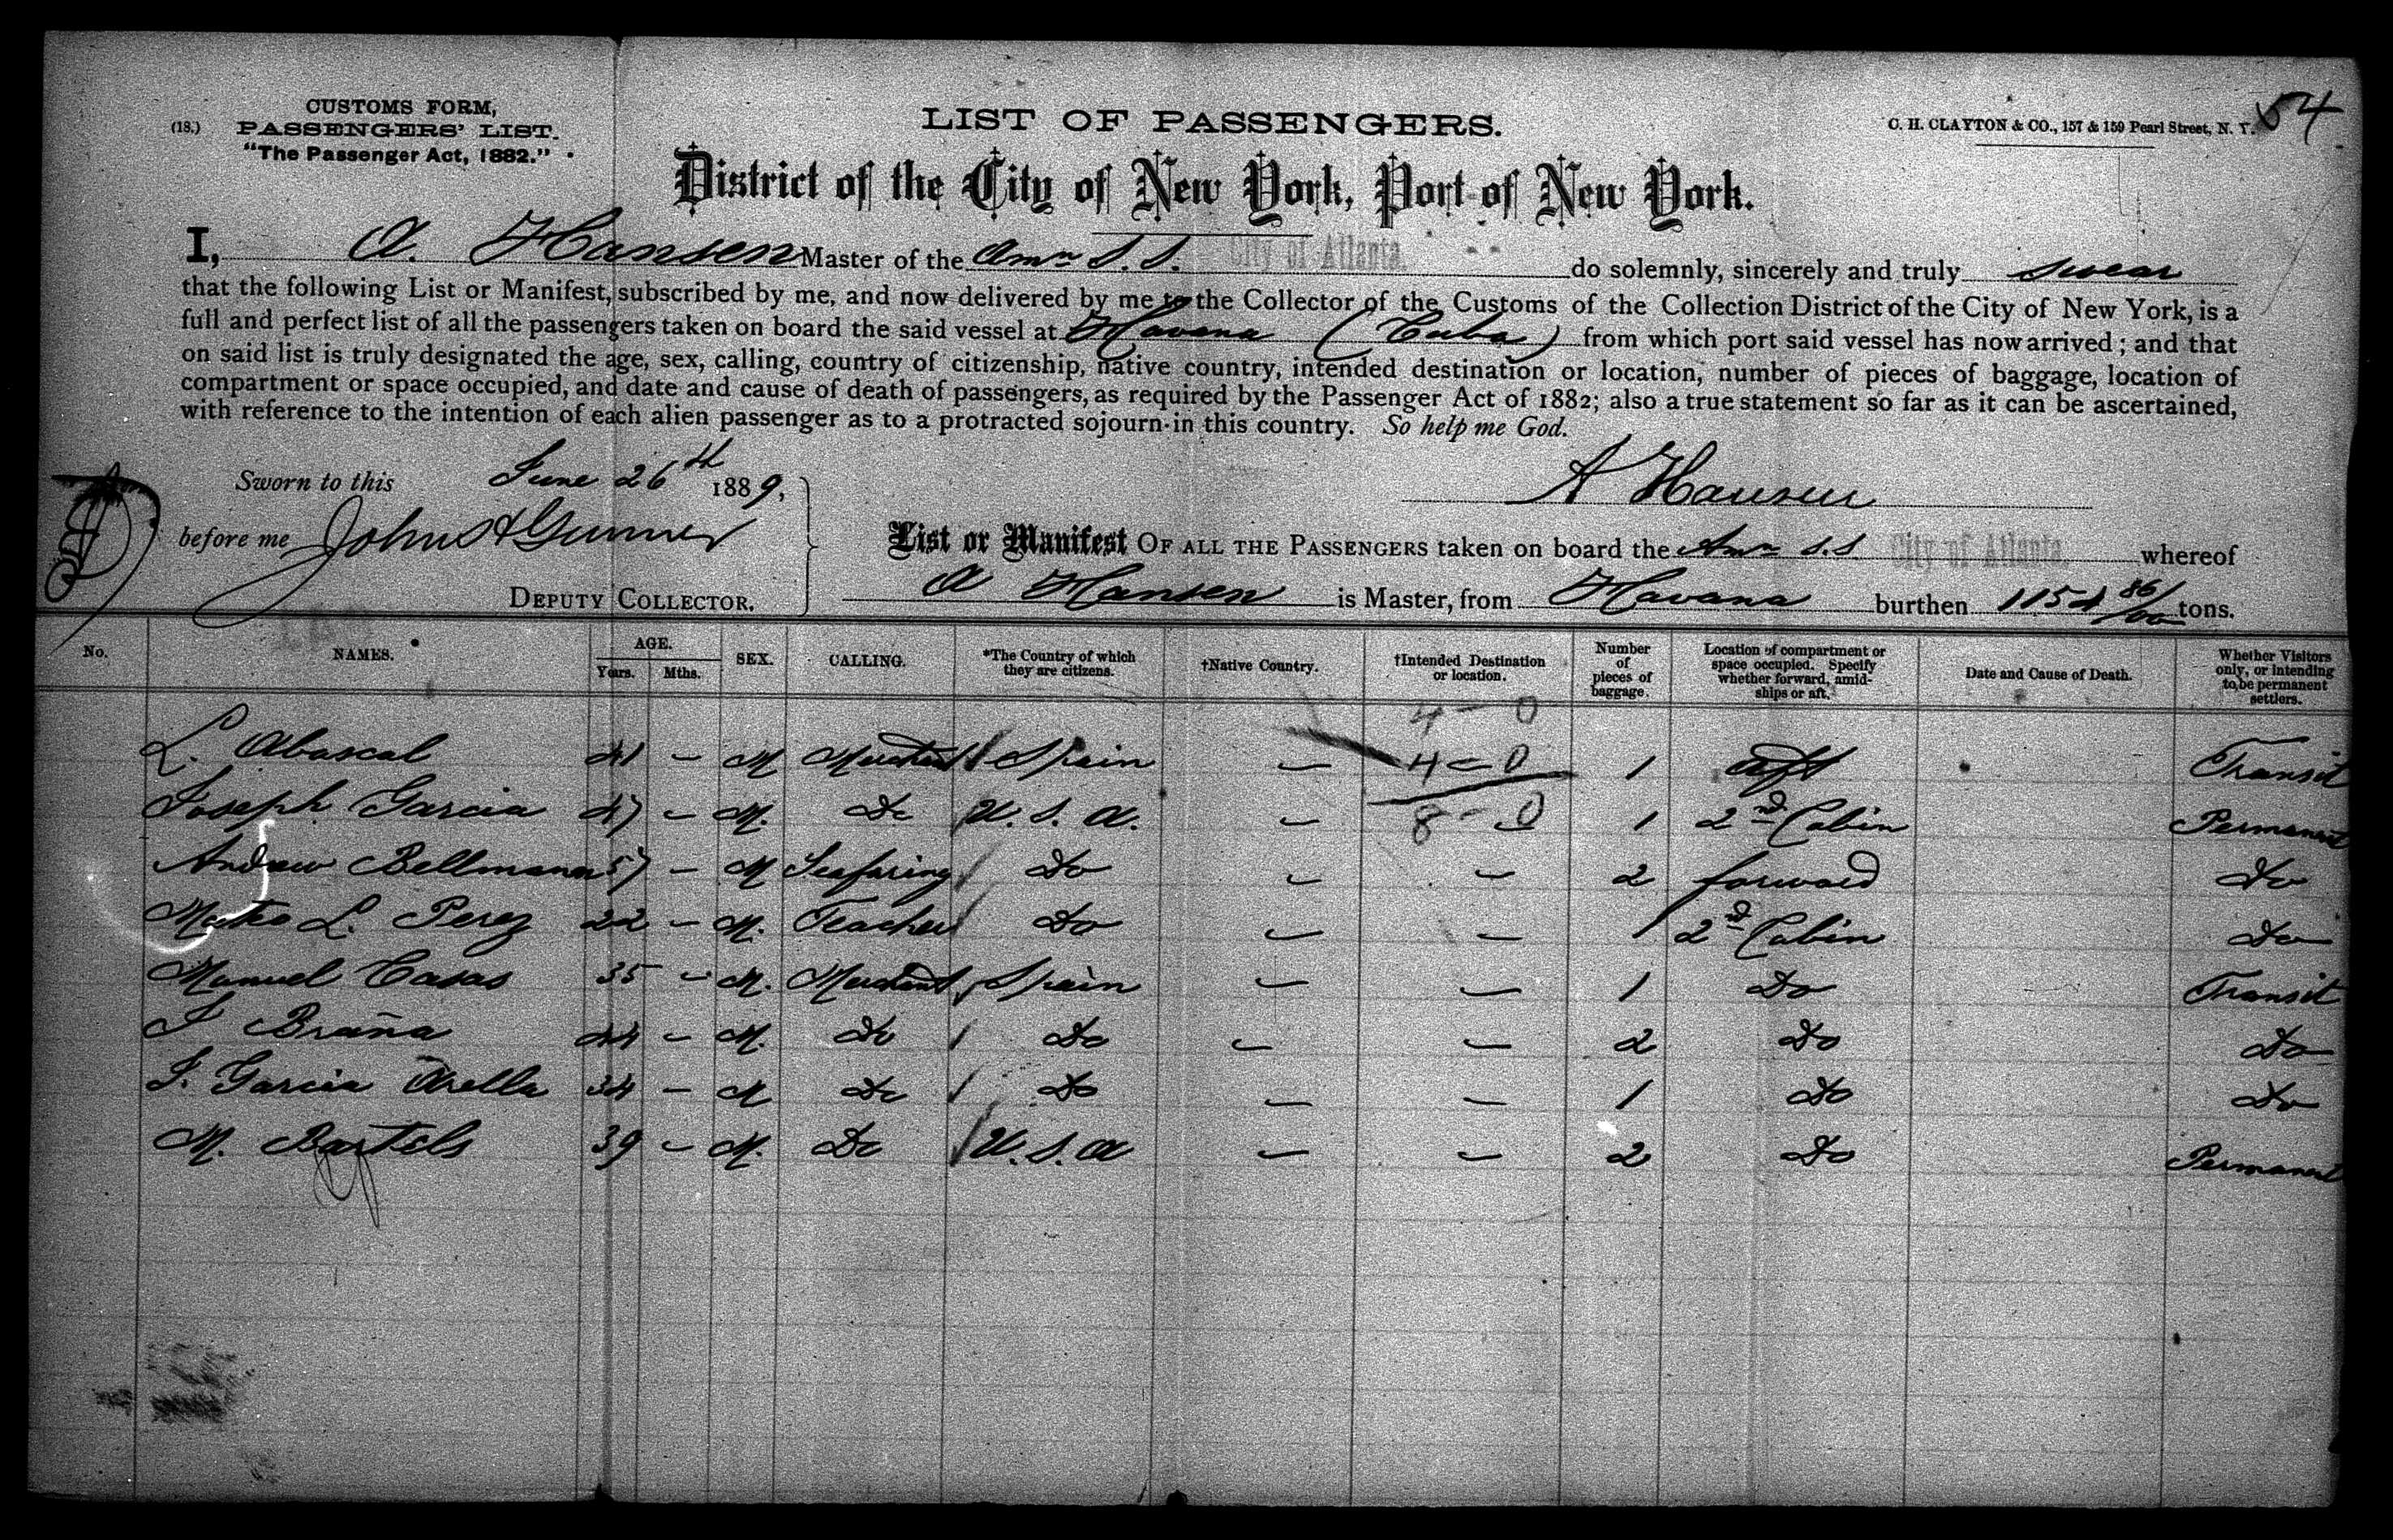 CUSTOMS FORM,
(18.) PASSENGERS' LIST.
"The Passenger Act, 1882."
LIST OF PASSENGERS.
C. H. CLAYTON & CO., 157 & 159 Pearl Street, N. Y.
54
District of the City of New York, Port of New York.
I, A. Hansen Master of the Amn S.S. City of Atlanta. do solemnly, sincerely and truly swear
that the following List or Manifest, subscribed by me, and now delivered by me to the Collector of the Customs of the Collection District of the City of New York, is a
full and perfect list of all the passengers taken on board the said vessel at Havana (Cuba) from which port said vessel has now arrived; and that
on said list is truly designated the age, sex, calling, country of citizenship, native country, intended destination or location, number of pieces of baggage, location of
compartment or space occupied, and date and cause of death of passengers, as required by the Passenger Act of 1882; also a true statement so far as it can be ascertained,
with reference to the intention of each alien passenger as to a protracted sojourn in this country. So help me God.
Sworn to this June 26th 1889,
A Hansen
before me John
DEPUTY COLLECTOR.
List or Manifest OF ALL THE PASSENGERS taken on board the Amn S.S City of Atlanta whereof
A Hansen is Master, from Havana burthen 1154 86/100 tons.
No. NAMES. AGE. Years. Mths. SEX. CALLING. *The Country of which they are citizens. †Native Country. †Intended Destination or location. Number of pieces of baggage. Location of compartment or space occupied. Specify whether forward, amidships or aft. Date and Cause of Death. Whether Visitors only, or intending to be permanent settlers.
4 - 0
L. Abascal 41 - M Merchant Spain - 4 - 0 1 aft Transit
Joseph Garcia 47 - M. Do U.S.A. - 8 - 0 1 2nd Cabin Permanent
Andrew Bellmann 57 - M Seafaring Do - - 2 forward Do
L. Perez 22 - M. Teacher Do - - 1 2nd Cabin Do
Manuel Casas 35 - M. Merchant Spain - - 1 Do Transit
J Braña 44 - M. Do Do - - 2 Do Do
J. Garcia 34 - M Do Do - - 1 Do Do
M. Bartels 39 - M. Do U.S.A - - 2 Do Permanent